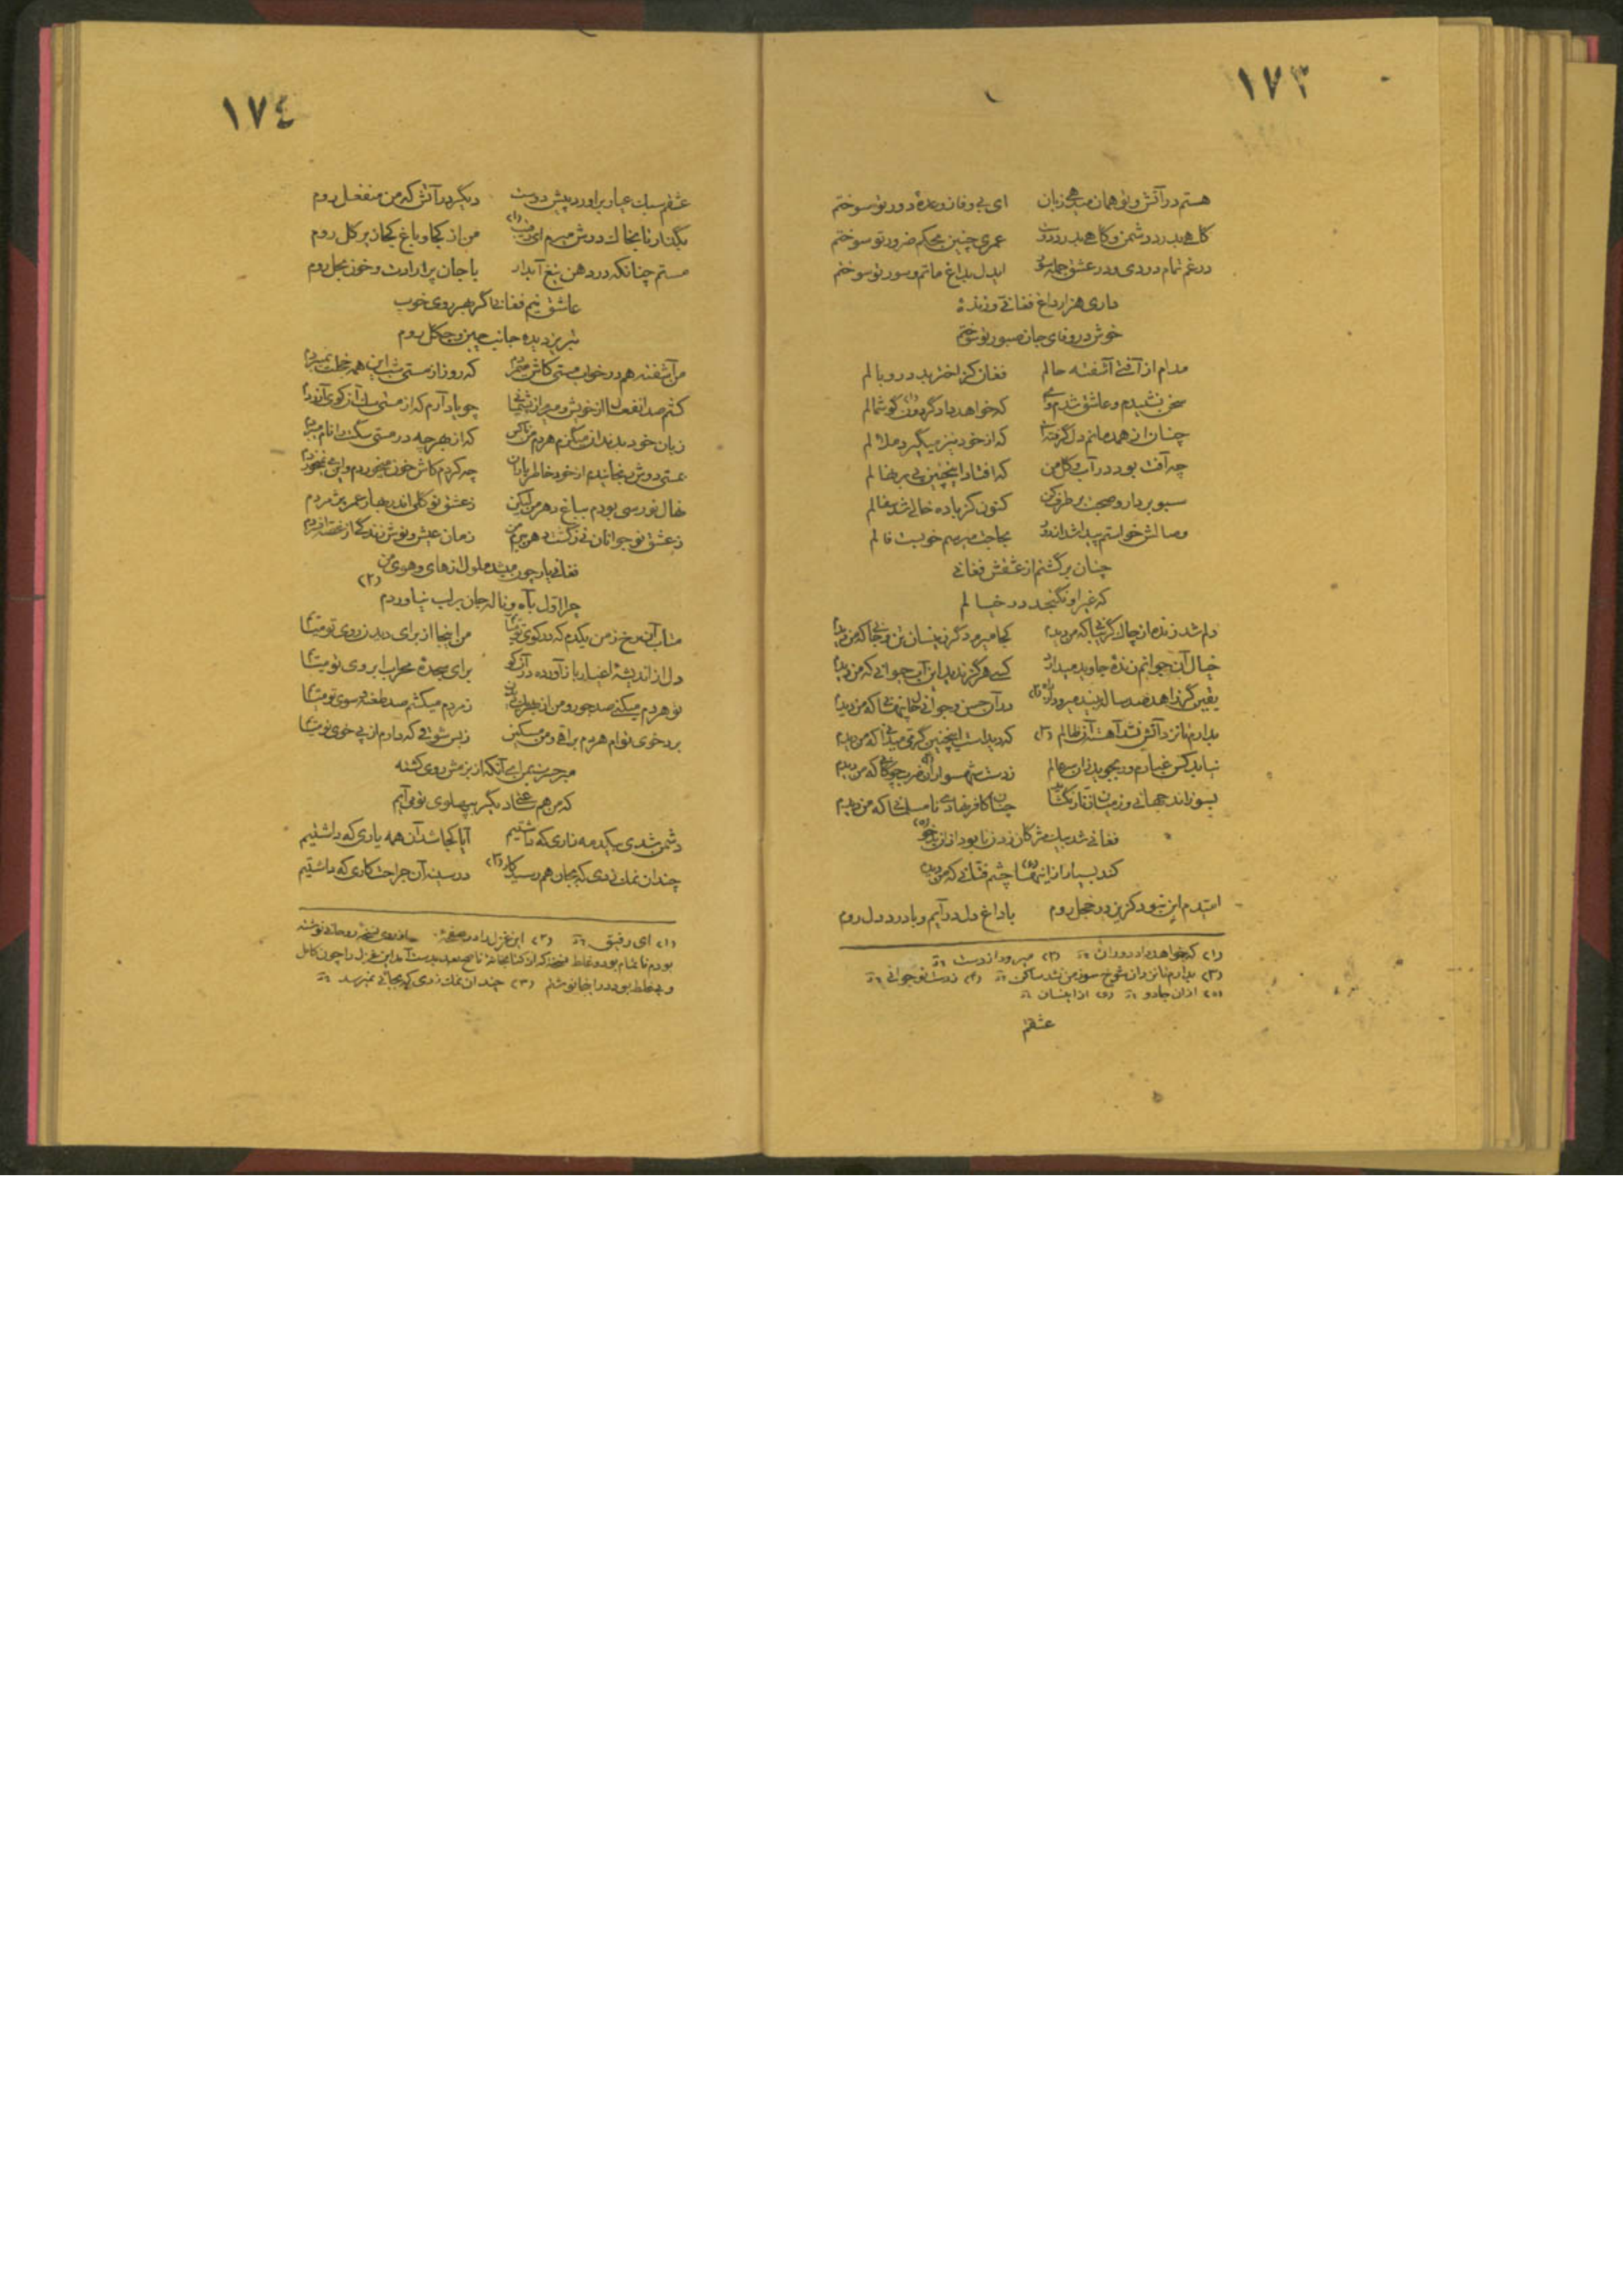 ١٧٣
هستم در آتش و تو همان میدهی زبان ای بی وفا ز وعدهٔ دور تو سوختم
گاهی بدرد دشمن و گاهی بدرد دوست عمری چنین بحکم ضرور تو سوختم
در غم تمام دردی و در عشق جمله سوز ایدل بداغ ماتم و سور تو سوختم
داری هزار داغ فغانی و زندهٔ
خوش در وفای جان صبور تو سوختم
مدام از آفتی آشفته حالم فغان کز اختر بد در وبالم
سخن نشنیدم و عاشق شدم وای که خواهد داد گردون گوشمالم
چنان از همدمانم دل گرفته که از خود نیز میگیرد ملالم
چه آفت بود در آب و گل من که افتاد اینچنین بی بر نهالم
سبو بردار و صحبت بر طرف کن کنون کز باده خالی شد سفالم
وصالش خواستم پیدا شد از دور بحاجت میرسم خوبست فالم
چنان پر گشتم از عشقش فغانی
که غیر او نگنجد در خیالم
دلم شد زنده از چاک گریبانی که من دیدم کجا میرد کزینسان تن و جانی که من دیدم
خیال آن جوانم زندهٔ جاوید میدارد کسی هرگز ندید این آب حیوانی که من دیدم
یقین گر زاهد صد ساله بیند میرود از ره (٢) در آن حسن و جوانی که من دیدم
ندارم تاز در آتش نشد آهت از ظالم (٣) که دیدست اینچنین گرمی که من دیدم
نیابد کس غبارم ور بجوید زان سر عالم ز دست شهسوار آن ضرب چوگانی که من دیدم
بسوزاند جهانی و ز میان زنار نگشاید چنان کافر نهادی نامسلمانی که من دیدم
فغانی شد بیک مژگان زدن نابود از آن جادو (٥)
کند بسیار از اینها چشم فتانی که من دیدم
امیدم این نبود کزین در خجل روم با داغ دل در آیم و با درد دل روم
(١) که خواهد داد دوران (٢) میرود از دست
(٣) ندارم تاز دان شوخ سوز من نشد ساکن (٤) ز دست نو جوانی
(٥) از آن جادو (٥) از اینسان
عشقم
١٧٤
عشقم سبک عیار بر آورد پیش دوست دیگر در آتش که من منفعل روم
بگذار تا بخاک درش میرم ای رقیب (١) من از کجا و باغ کجا ز پر گل روم
مستم چنانکه در دهن تیغ آبدار با جان پر ارادت و خون بحل روم
عاشق نیم فغانی اگر بهر روی خوب
تبریز دیده جانب چین و چگل روم
من آشفته هم در خواب مستی کاش میمردم که روز از مستی شب این همه خجلت نمیبردم
کشم صد انفعال از خویش و میرم از پشیمانی چو یاد آرم که از مستی سگ آن کوی آزردم
زبان خود بدندان میگزم هر دم من ناکس که از بهر چه در مستی سگت را نام میبردم
بمستی دوش رنجانیدم از خود خاطر یاران چه کردم کاش خون میخوردم و این می نمیخوردم
نهال نورسی بودم بباغ دهر من لیکن ز عشق نو گلی اندر بهار عمر پژمردم
ز عشق نو جوانان نی ز گشت دهر پیرم من زمان عیش و نوش زندگی از غصه افسردم
فغانی یار چون میشد ملول از های و هوی من
چرا اول بآه و ناله جان بر لب نیاوردم (٢)
متاب آن رخ ز من یکدم که در کوی تو میآیم من اینجا از برای دیدن روی تو میآیم
دل از اندیشهٔ اغیار باز آورده در آن کو برای سجدهٔ محراب ابروی تو میآیم
تو هر دم میکنی صد جور و من از بیقراری ز مردم میکشم صد طعنه و سوی تو میآیم
بر خوی توام هر دم برانی و من مسکین ز بس شوقی که دارم از پی خوی تو میآیم
مبر حسرت بمن ای آنکه از بزمش روی گشته
که من هم شاد دیگر ز پهلوی تو می آیم
دشمن شدی بیکدمه ناری که داشتیم آیا کجا شد آن همه یاری که داشتیم
چندان نمک زدی که بجان هم رسید کار (٣) در سینه آن جراحت کاری که داشتیم
(١) ای رفیق (٢) این غزل را در صفحهٔ از روی نسخهٔ روحانی نوشته
بودم ناتمام بود و غلط نسخه که از کتابخانهٔ بعد بدست آمد این غزل را چون کامل
و بی غلط بود در اینجا نوشتم (٣) چندان نمک زدی که بجائی نمیرسد